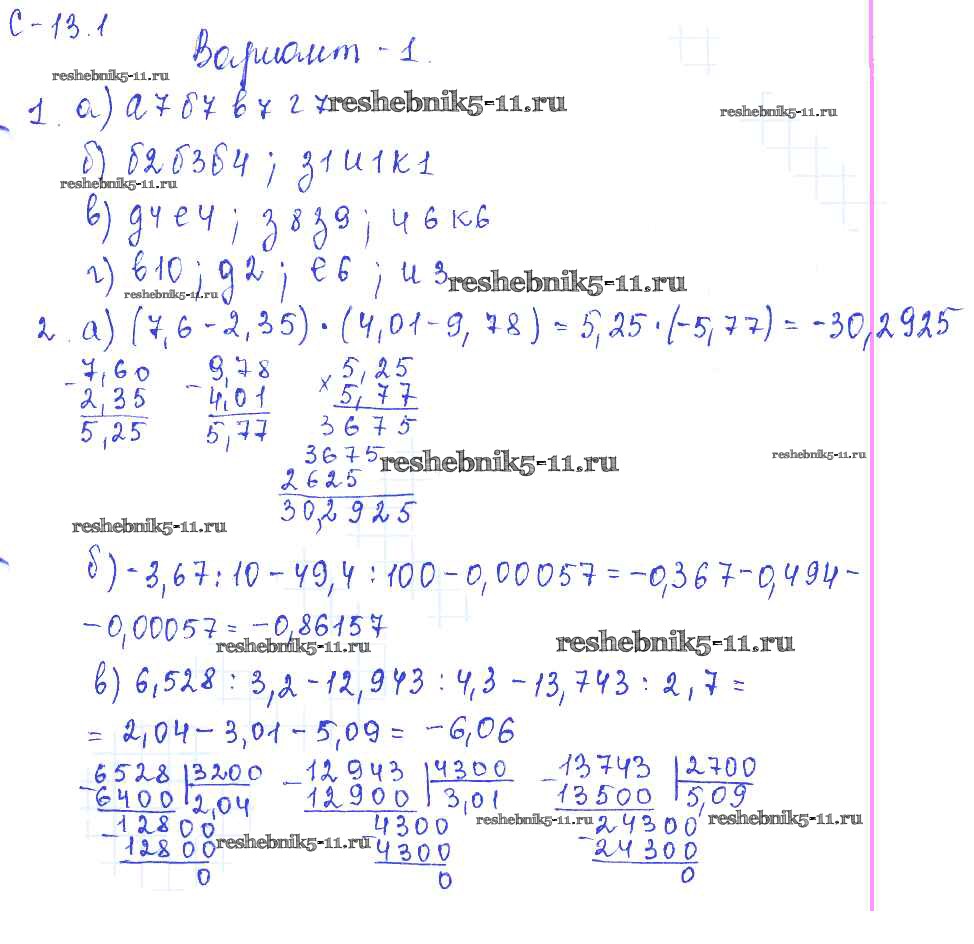 С-13.1
Вариант-1.
reshebnik5-11.ru
1. а) а7 б7 в7 г7 reshebnik5-11.ru
reshebnik5-11.ru
б) б2 б3 б4; з1 и1 к1
reshebnik5-11.ru
в) д4 е4; з8 з9; и6 к6
г) в10; д2; е6; и3 reshebnik5-11.ru
reshebnik5-11.ru
2. а) (7,6-2,35)·(4,01-9,78)=5,25·(-5,77)=-30,2925
-7,60 -9,78 ×5,25
2,35 4,01 5,77
5,25 5,77 3675
3675 reshebnik5-11.ru
reshebnik5-11.ru
2625
30,2925
reshebnik5-11.ru
б) -3,67:10-49,4:100-0,00057=-0,367-0,494-
-0,00057=-0,86157
reshebnik5-11.ru reshebnik5-11.ru
в) 6,528:3,2-12,943:4,3-13,743:2,7=
=2,04-3,01-5,09=-6,06
-6528 3200 -12943 4300 -13743 2700
6400 2,04 12900 3,01 13500 5,09
-12800 -4300 reshebnik5-11.ru -24300 reshebnik5-11.ru
12800 reshebnik5-11.ru 4300 24300
0 0 0